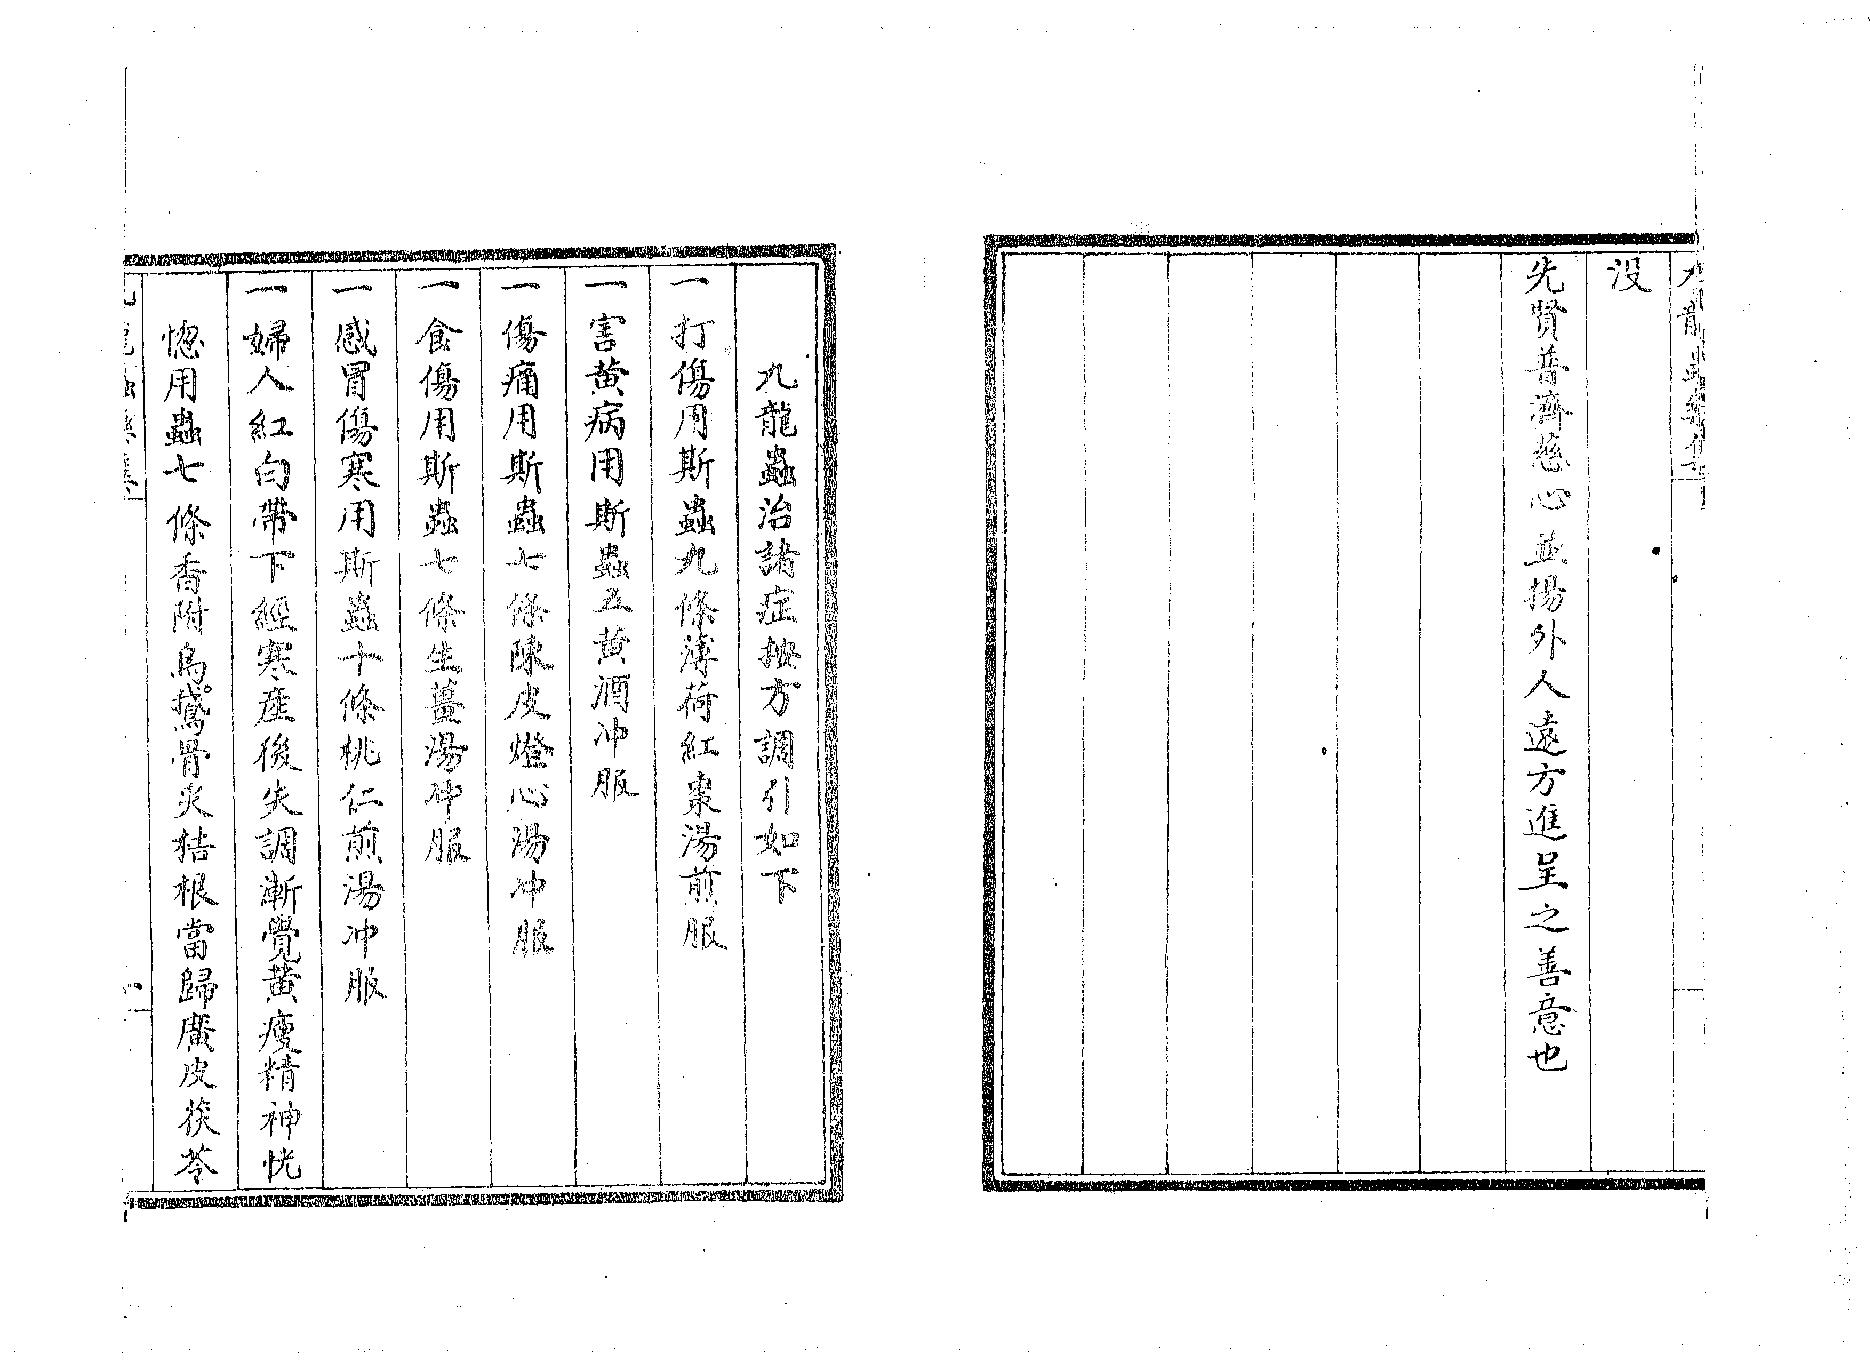 九龍蟲
沒
先賢普濟慈心並揚外人遠方進呈之善意也
九龍蟲治諸症按方調引如下
一打傷用斯蟲九條薄荷紅棗湯煎服
一害黄病用斯蟲五黄酒冲服
一傷痛用斯蟲七條陳皮燈心湯冲服
一食傷用斯蟲七條生薑湯冲服
一感冒傷寒用斯蟲十條桃仁煎湯冲服
一婦人紅白帶下經寒産後失調漸覺黄瘦精神恍
惚用蟲七條香附烏鵞骨炙秸根當歸廣皮茯苓
九龍蟲